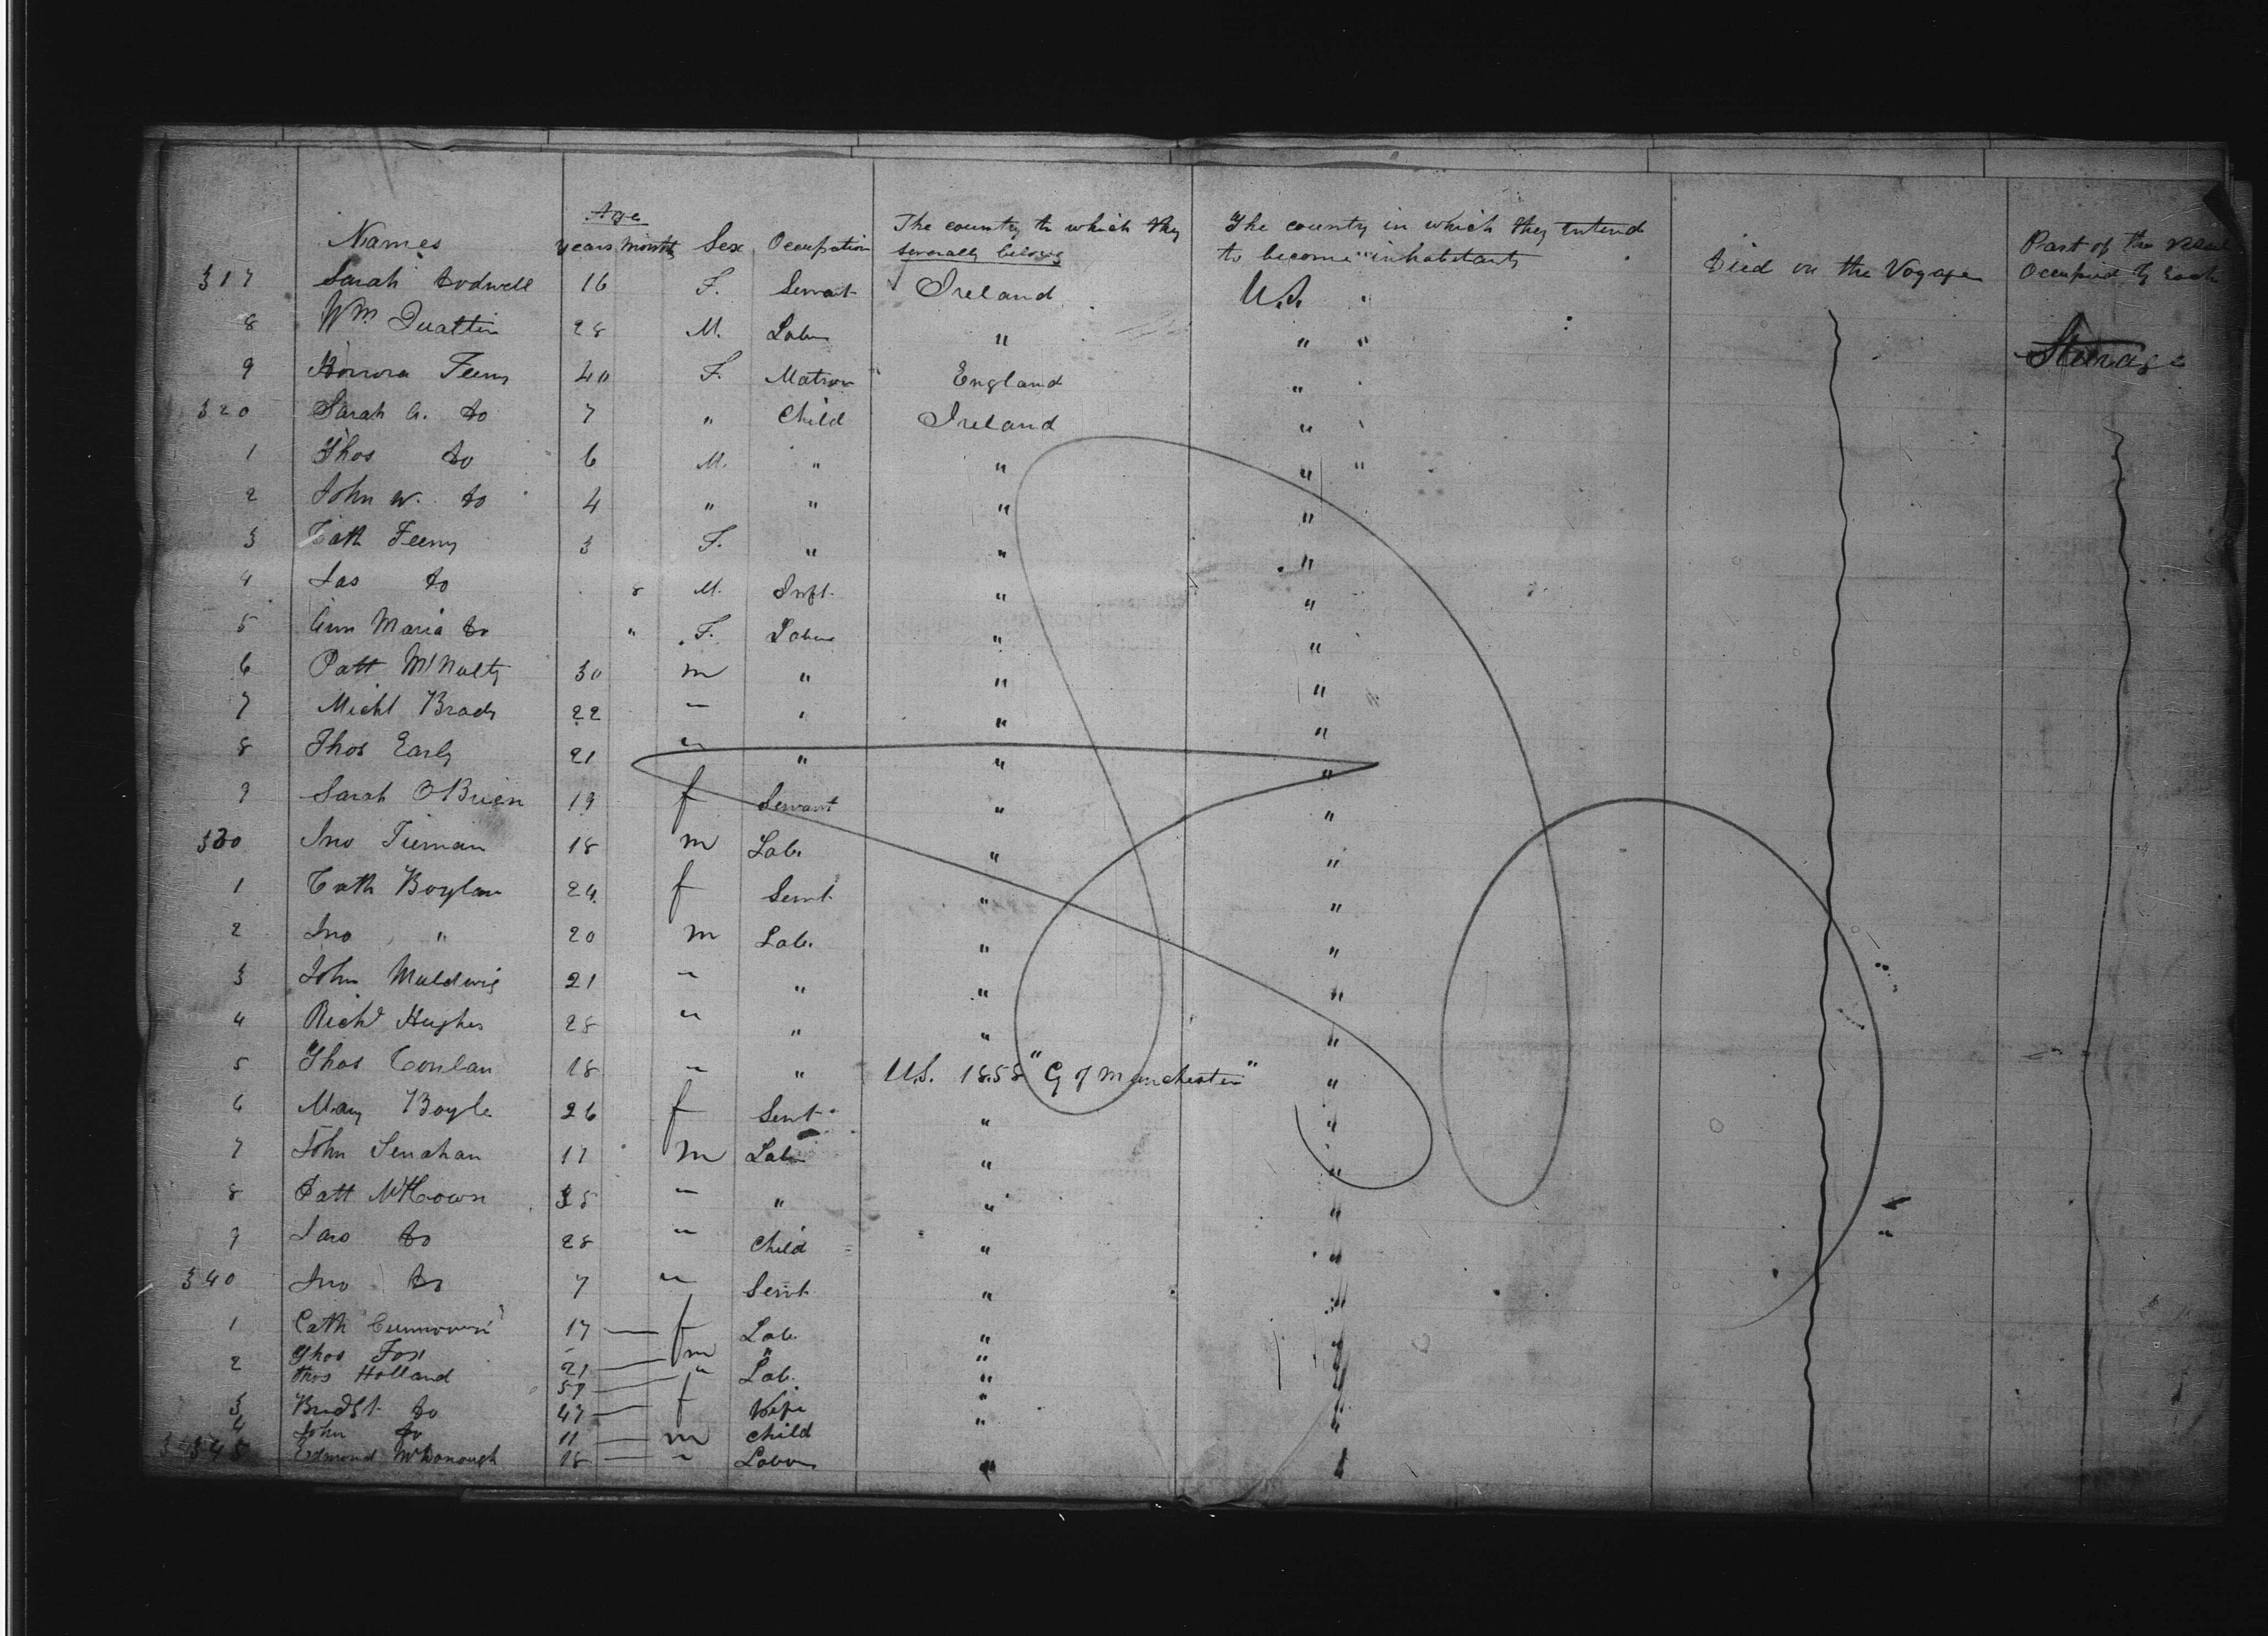 Names Age years Month Sex Occupation The country to which they severally belong The country in which they intend to become inhabitants Died on the Voyage Part of the vessel Occupied by Each
317 Sarah Dodwell 16 F. Servant Ireland U.S. "
8 Wm 28 M. Labr " " " Steerage
9 Honora Feeny 40 F. Matron England "
320 Sarah A. do 7 " Child Ireland "
1 Thos do 6 M. " " " "
2 John W. do 4 " " " "
3 Cath Feeny 3 F. " " "
4 Jas do 8 M. Inft " "
5 Ann Maria do " F. Labour " "
6 Patt McNulty 30 m " " "
7 Michl Brady 22 " " " "
8 Thos Early 21 " " " "
9 Sarah O'Brien 19 f Servant " "
330 Jno Tiernan 18 m Lab. " "
1 Cath Boylan 24 f Servt " "
2 Jno " 20 m Lab. " "
3 John 21 " " " "
4 Richd Hughes 28 " " " "
5 Thos Conlan 18 " " U.S. 1858 "C of Manchester" "
6 Mary Boyle 26 f Servt " "
7 John Lenahan 17 m Lab " "
8 Patt 35 " " " "
9 do 28 " Child " "
340 Jno do 7 " Servt " "
1 Cath 17 f Lab. " "
2 Thos Fox 21 m " " "
Thos Holland 59 " Lab. " "
3 Bridgt do 47 f Wife " "
4 John do 11 m Child " "
345 Edmond McDonough 18 " Labour " "